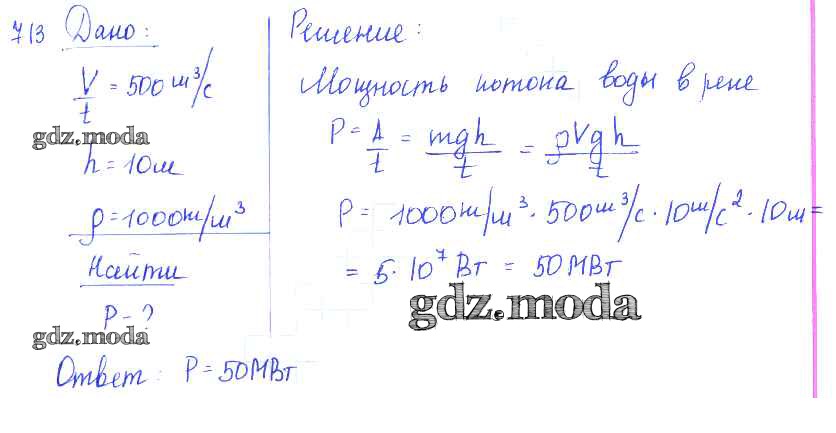 713 Дано:
V/t = 500 м³/с
gdz.moda
h = 10м
ρ = 1000кг/м³
Найти
P - ?
gdz.moda
Решение:
Мощность потока воды в реке
P = A/t = mgh/t = ρVgh/t
P = 1000кг/м³ · 500м³/с · 10м/с² · 10м =
= 5 · 10⁷ Вт = 50МВт
gdz.moda
Ответ: P = 50МВт